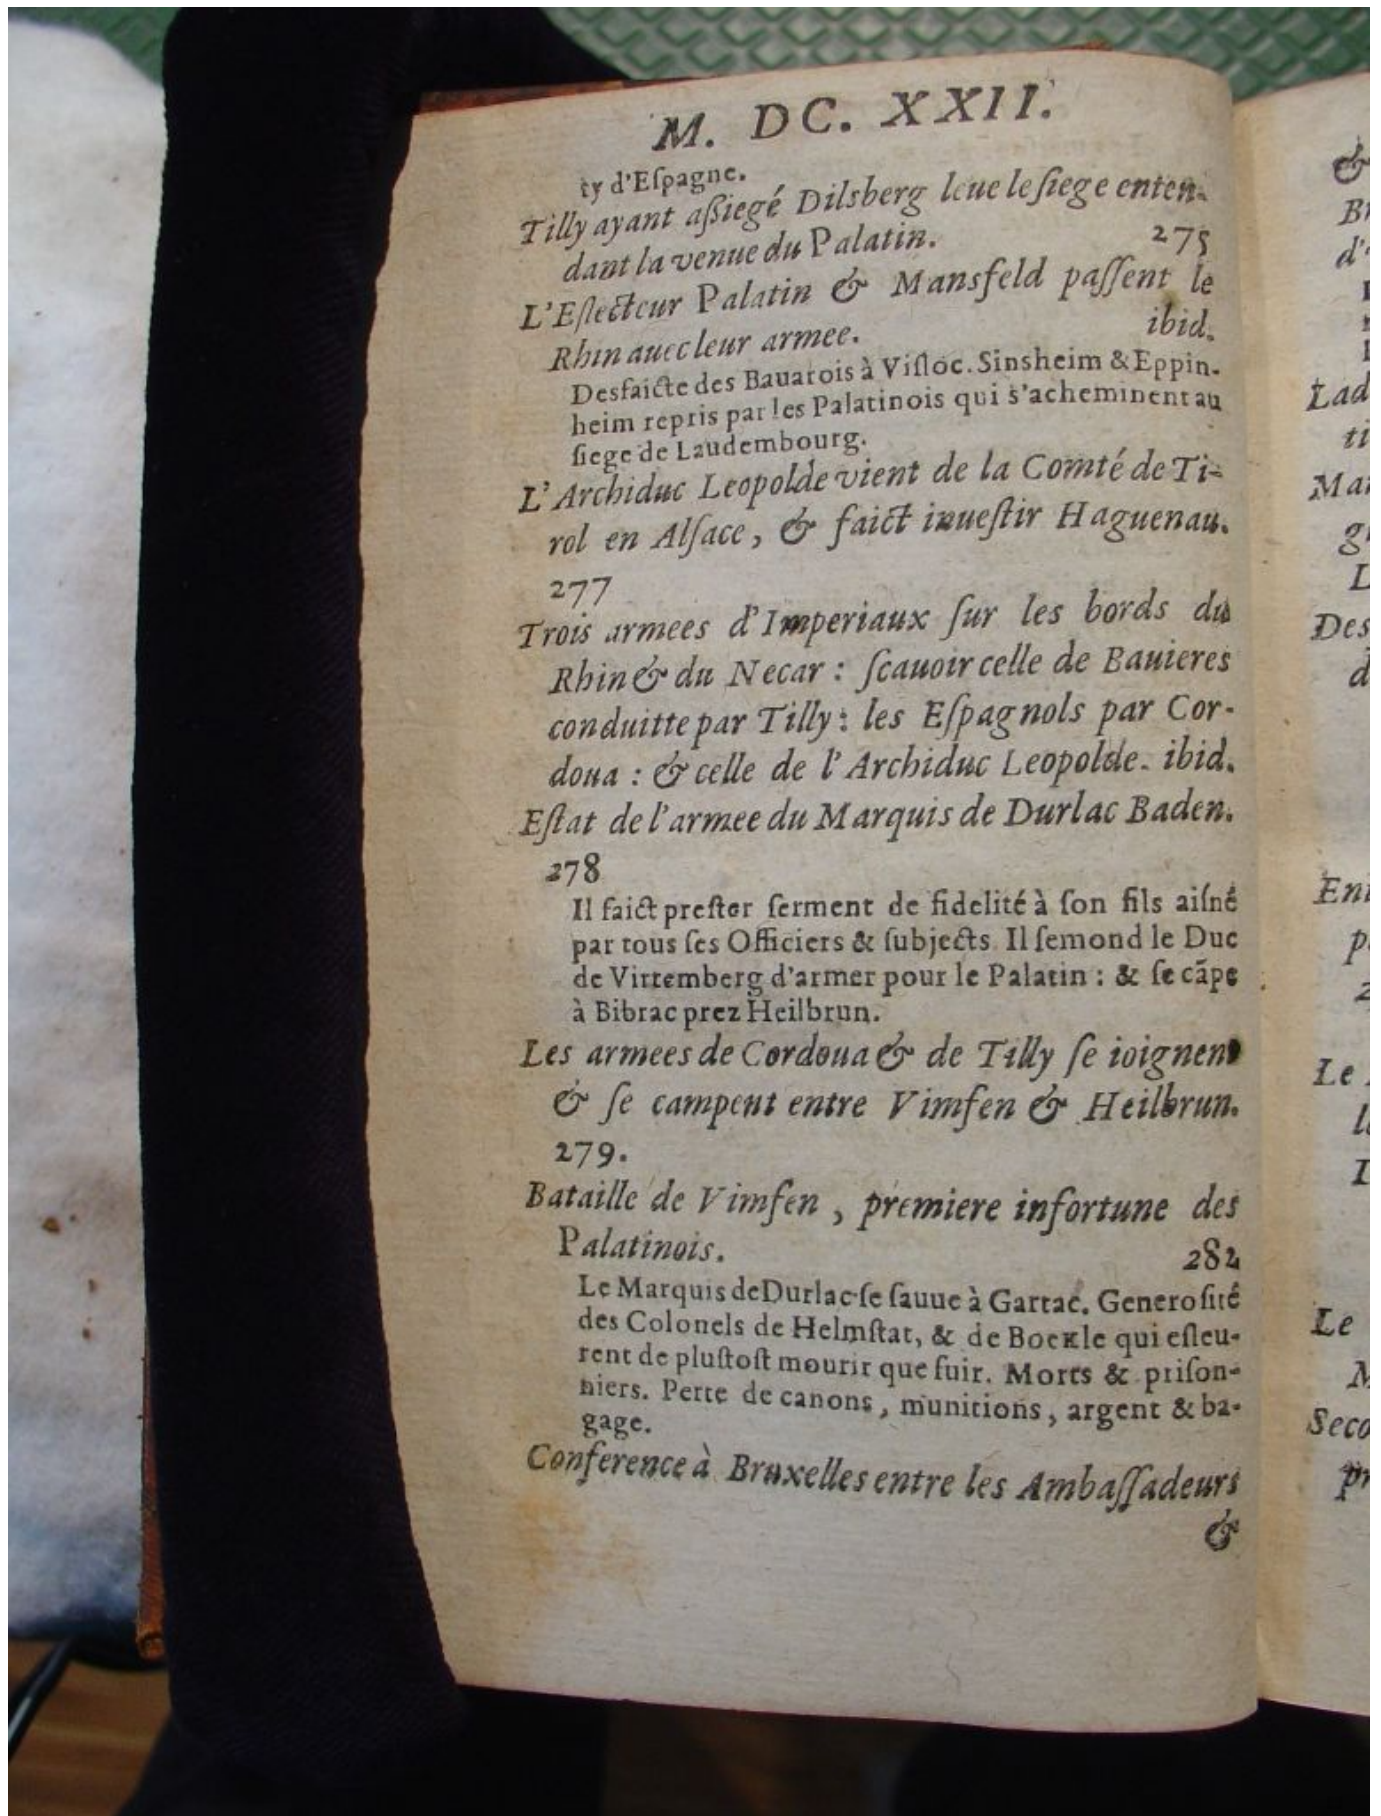 M. DC. XXII.
ty d'Eſpagne.
Tilly ayant aſſiegé Dilsberg leue le ſiege enten-
dant la venue du Palatin. 275
L'Eſlecteur Palatin & Mansfeld paſſent le
Rhin auec leur armee. ibid.
Desfaicte des Bauarois à Viſloc. Sinsheim & Eppin-
heim repris par les Palatinois qui s'acheminent au
ſiege de Laudembourg.
L'Archiduc Leopolde vient de la Comté de Ti-
rol en Alſace, & faict inueſtir Haguenau.
277
Trois armees d'Imperiaux ſur les bords du
Rhin & du Necar : ſcauoir celle de Bauieres
conduitte par Tilly : les Eſpagnols par Cor-
doua : & celle de l'Archiduc Leopolde. ibid.
Eſtat de l'armee du Marquis de Durlac Baden.
278
Il faict preſter ſerment de fidelité à ſon fils aiſné
par tous ſes Officiers & ſubjects. Il ſemond le Duc
de Virtemberg d'armer pour le Palatin : & ſe cãpe
à Bibrac prez Heilbrun.
Les armees de Cordoua & de Tilly ſe ioignent
& ſe campent entre Vimfen & Heilbrun.
279.
Bataille de Vimfen, premiere infortune des
Palatinois. 282
Le Marquis de Durlac ſe ſauue à Gartac. Generoſité
des Colonels de Helmſtat, & de Boekle qui eſleu-
rent de pluſtoſt mourir que fuir. Morts & priſon-
niers. Perte de canons, munitions, argent & ba-
gage.
Conference à Bruxelles entre les Ambaſſadeurs
&
&
Lad
ti
Mar
Des
d
Le
Le
M
Seco